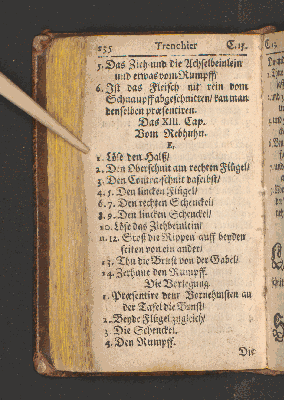 235 Trenchier C.13.
5. Das Zieh und die Achselbeinlein
und etwas vom Rumpff/
6. Ist das Fleisch nit rein vom
Schnaupff abgeschnitten/ kan man
denselben præsentiren.
Das XIII. Cap.
Vom Rebhuhn.
1. Löse den Halß/
2. Den Oberschnit am rechten Flügel/
3. Den Contraschnit daselbst/
4. 5. Den lincken Flügel/
6. 7. Den rechten Schenckel/
8. 9. Den lincken Schenckel/
10. Löse das Ziehbeinlein/
11. 12. Stoß die Rippen auff beyden
seiten von einander/
13. Thu die Brust von der Gabel/
14. Zerhaue den Rumpff.
Die Vorlegung.
1. Præsentire dem Vornehmsten an
der Tafel die Brust/
2. Beyde Flügel zugleich/
3. Die Schenckel.
4. Den Rumpff.
Die